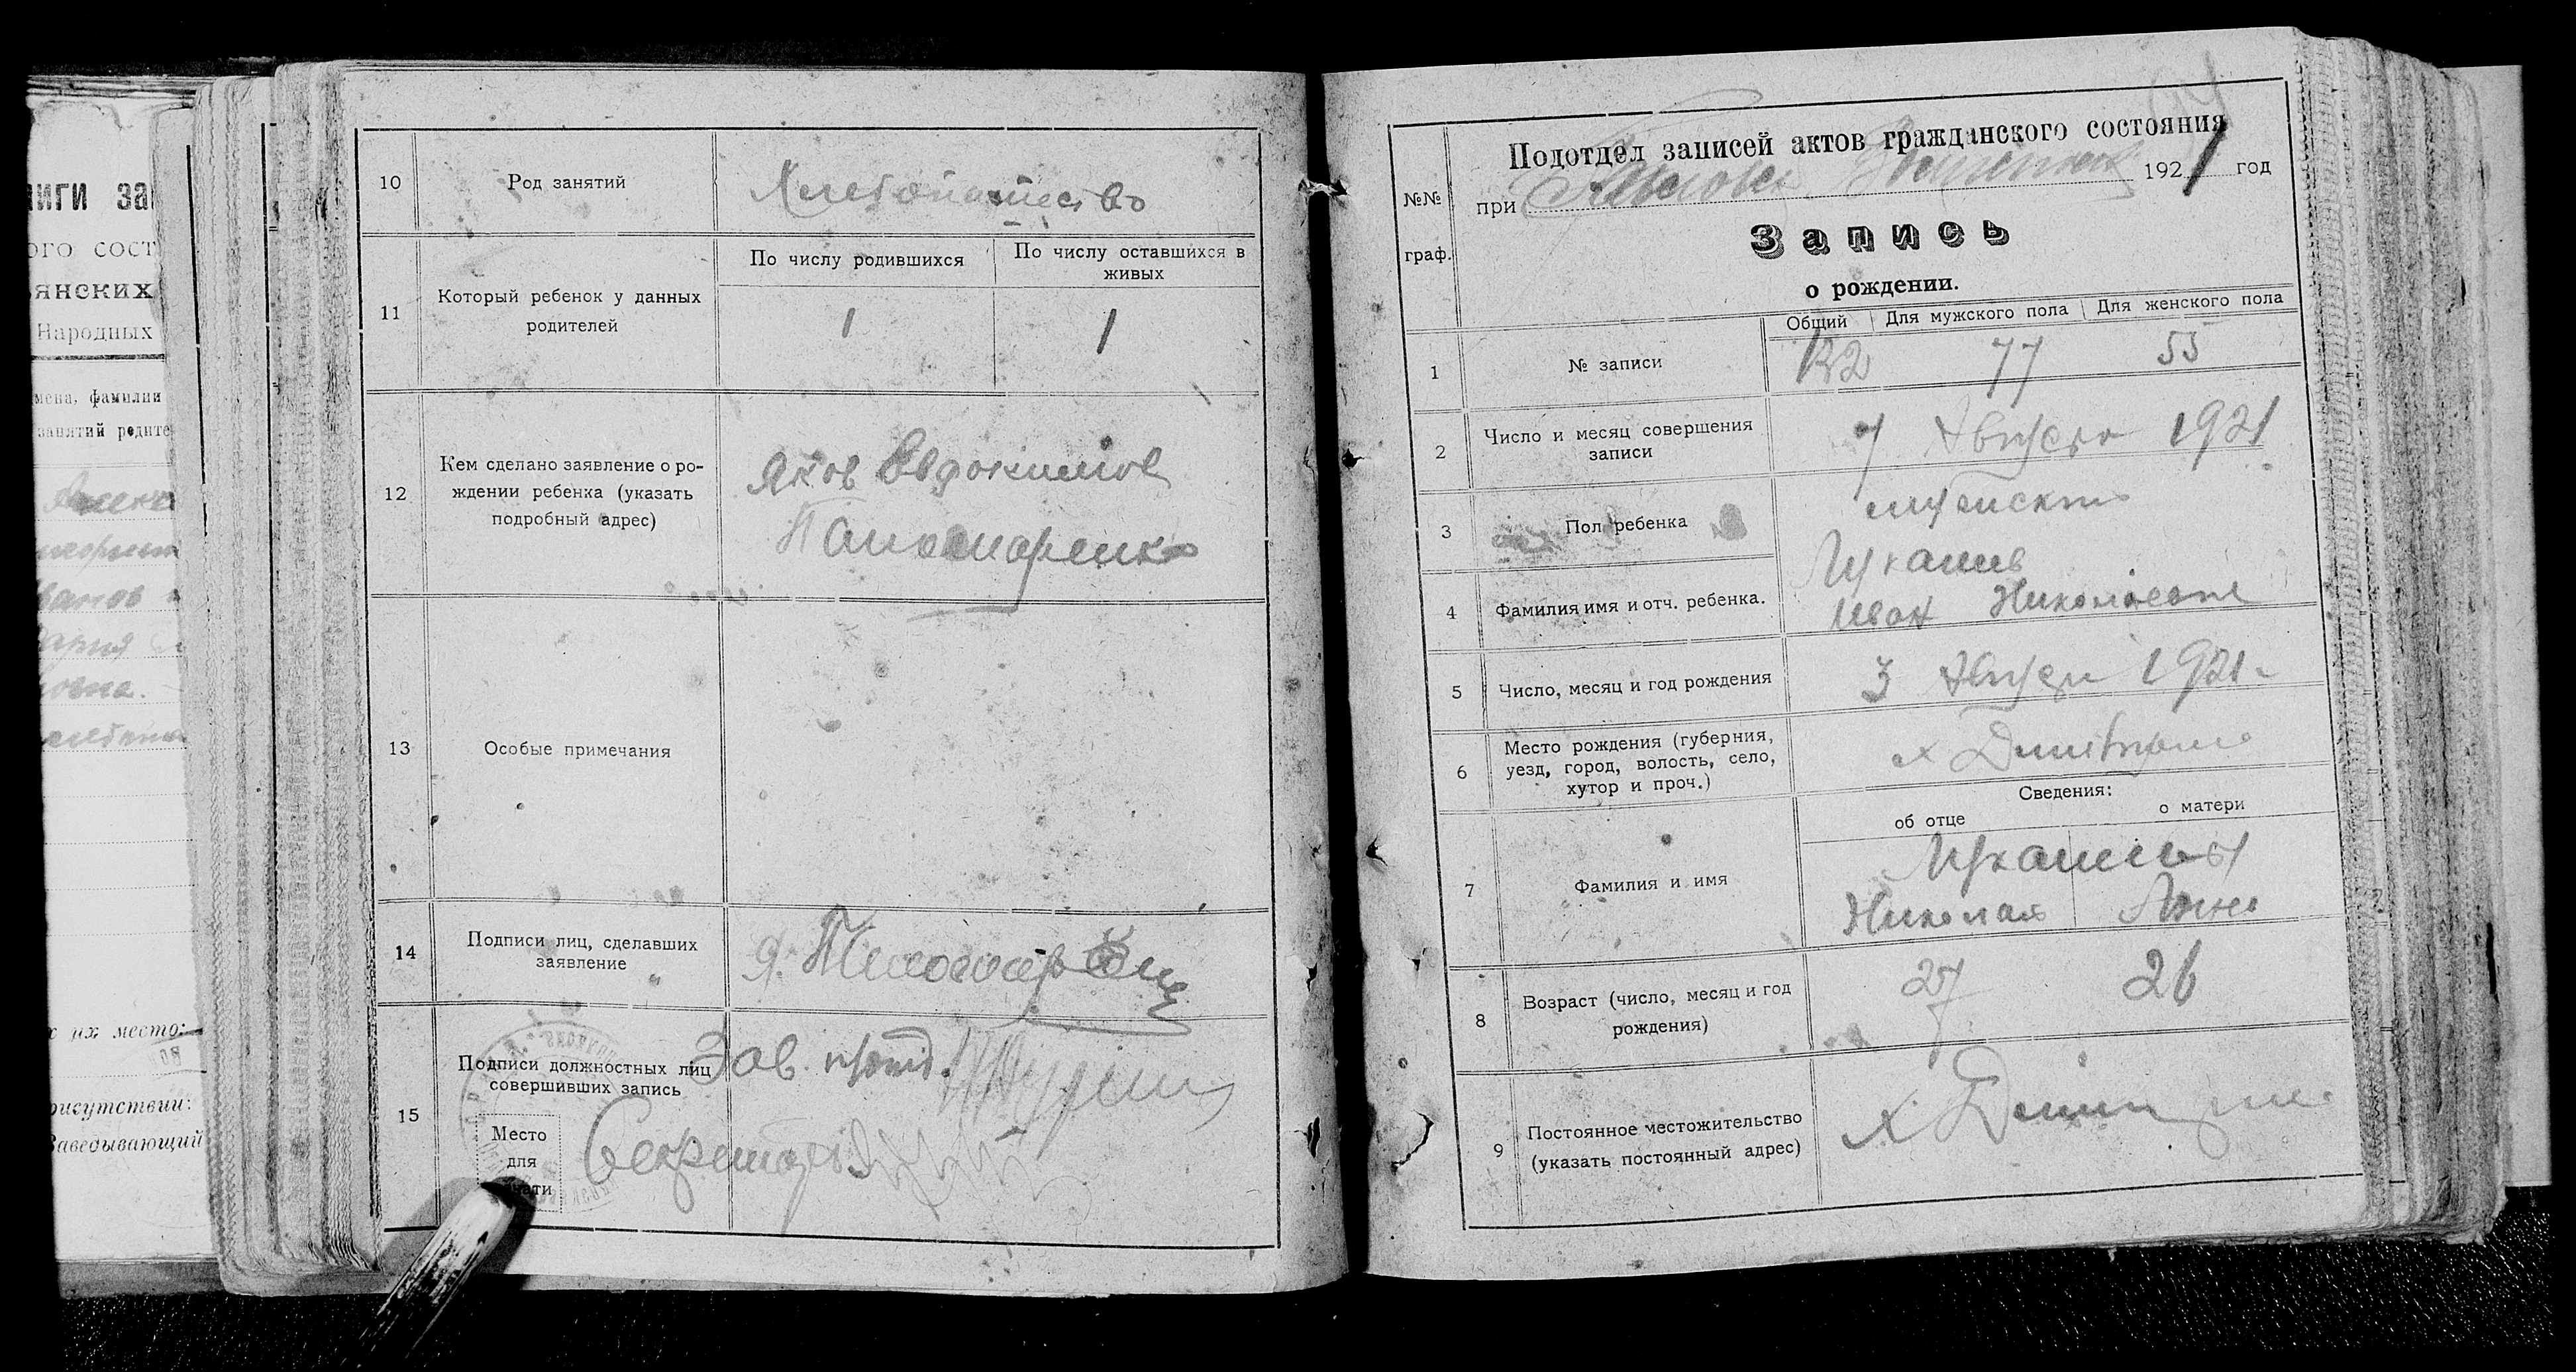 10
Род занятий
Хлебопашество
11
Который ребенок у данных
родителей
По числу родившихся
По числу оставшихся в
живых
1
1
12
Кем сделано заявление о ро-
ждении ребенка (указать
подробный адрес)
Яков Евдокимов
Паномаренко
13
Особые примечания
14
Подписи лиц, сделавших
заявление
Я.
15
Подписи должностных лиц
совершивших запись
Зав. п/отд.
Место
для
Секретарь
№№
граф.
Подотдел записей актов гражданского состояния
при
1921 год
Запись
о рождении.
1
№ записи
Общий
Для мужского пола
Для женского пола
132
77
55
2
Число и месяц совершения
записи
7 Августа 1921
3
Пол ребенка
мужской
4
Фамилия имя и отч. ребенка.
Лукашев
Иван Николаевич
5
Число, месяц и год рождения
3 Августа 1921 г.
6
Место рождения (губерния,
уезд, город, волость, село,
хутор и проч.)
х
Сведения:
об отце
о матери
7
Фамилия и имя
Лукашевы
Николай
Анна
8
Возраст (число, месяц и год
рождения)
27
26
9
Постоянное местожительство
(указать постоянный адрес)
х
иги за
ого сост
янских
Народных
мена, фамилии
занятий родите
х их место:
рисутствии:
Заведывающий